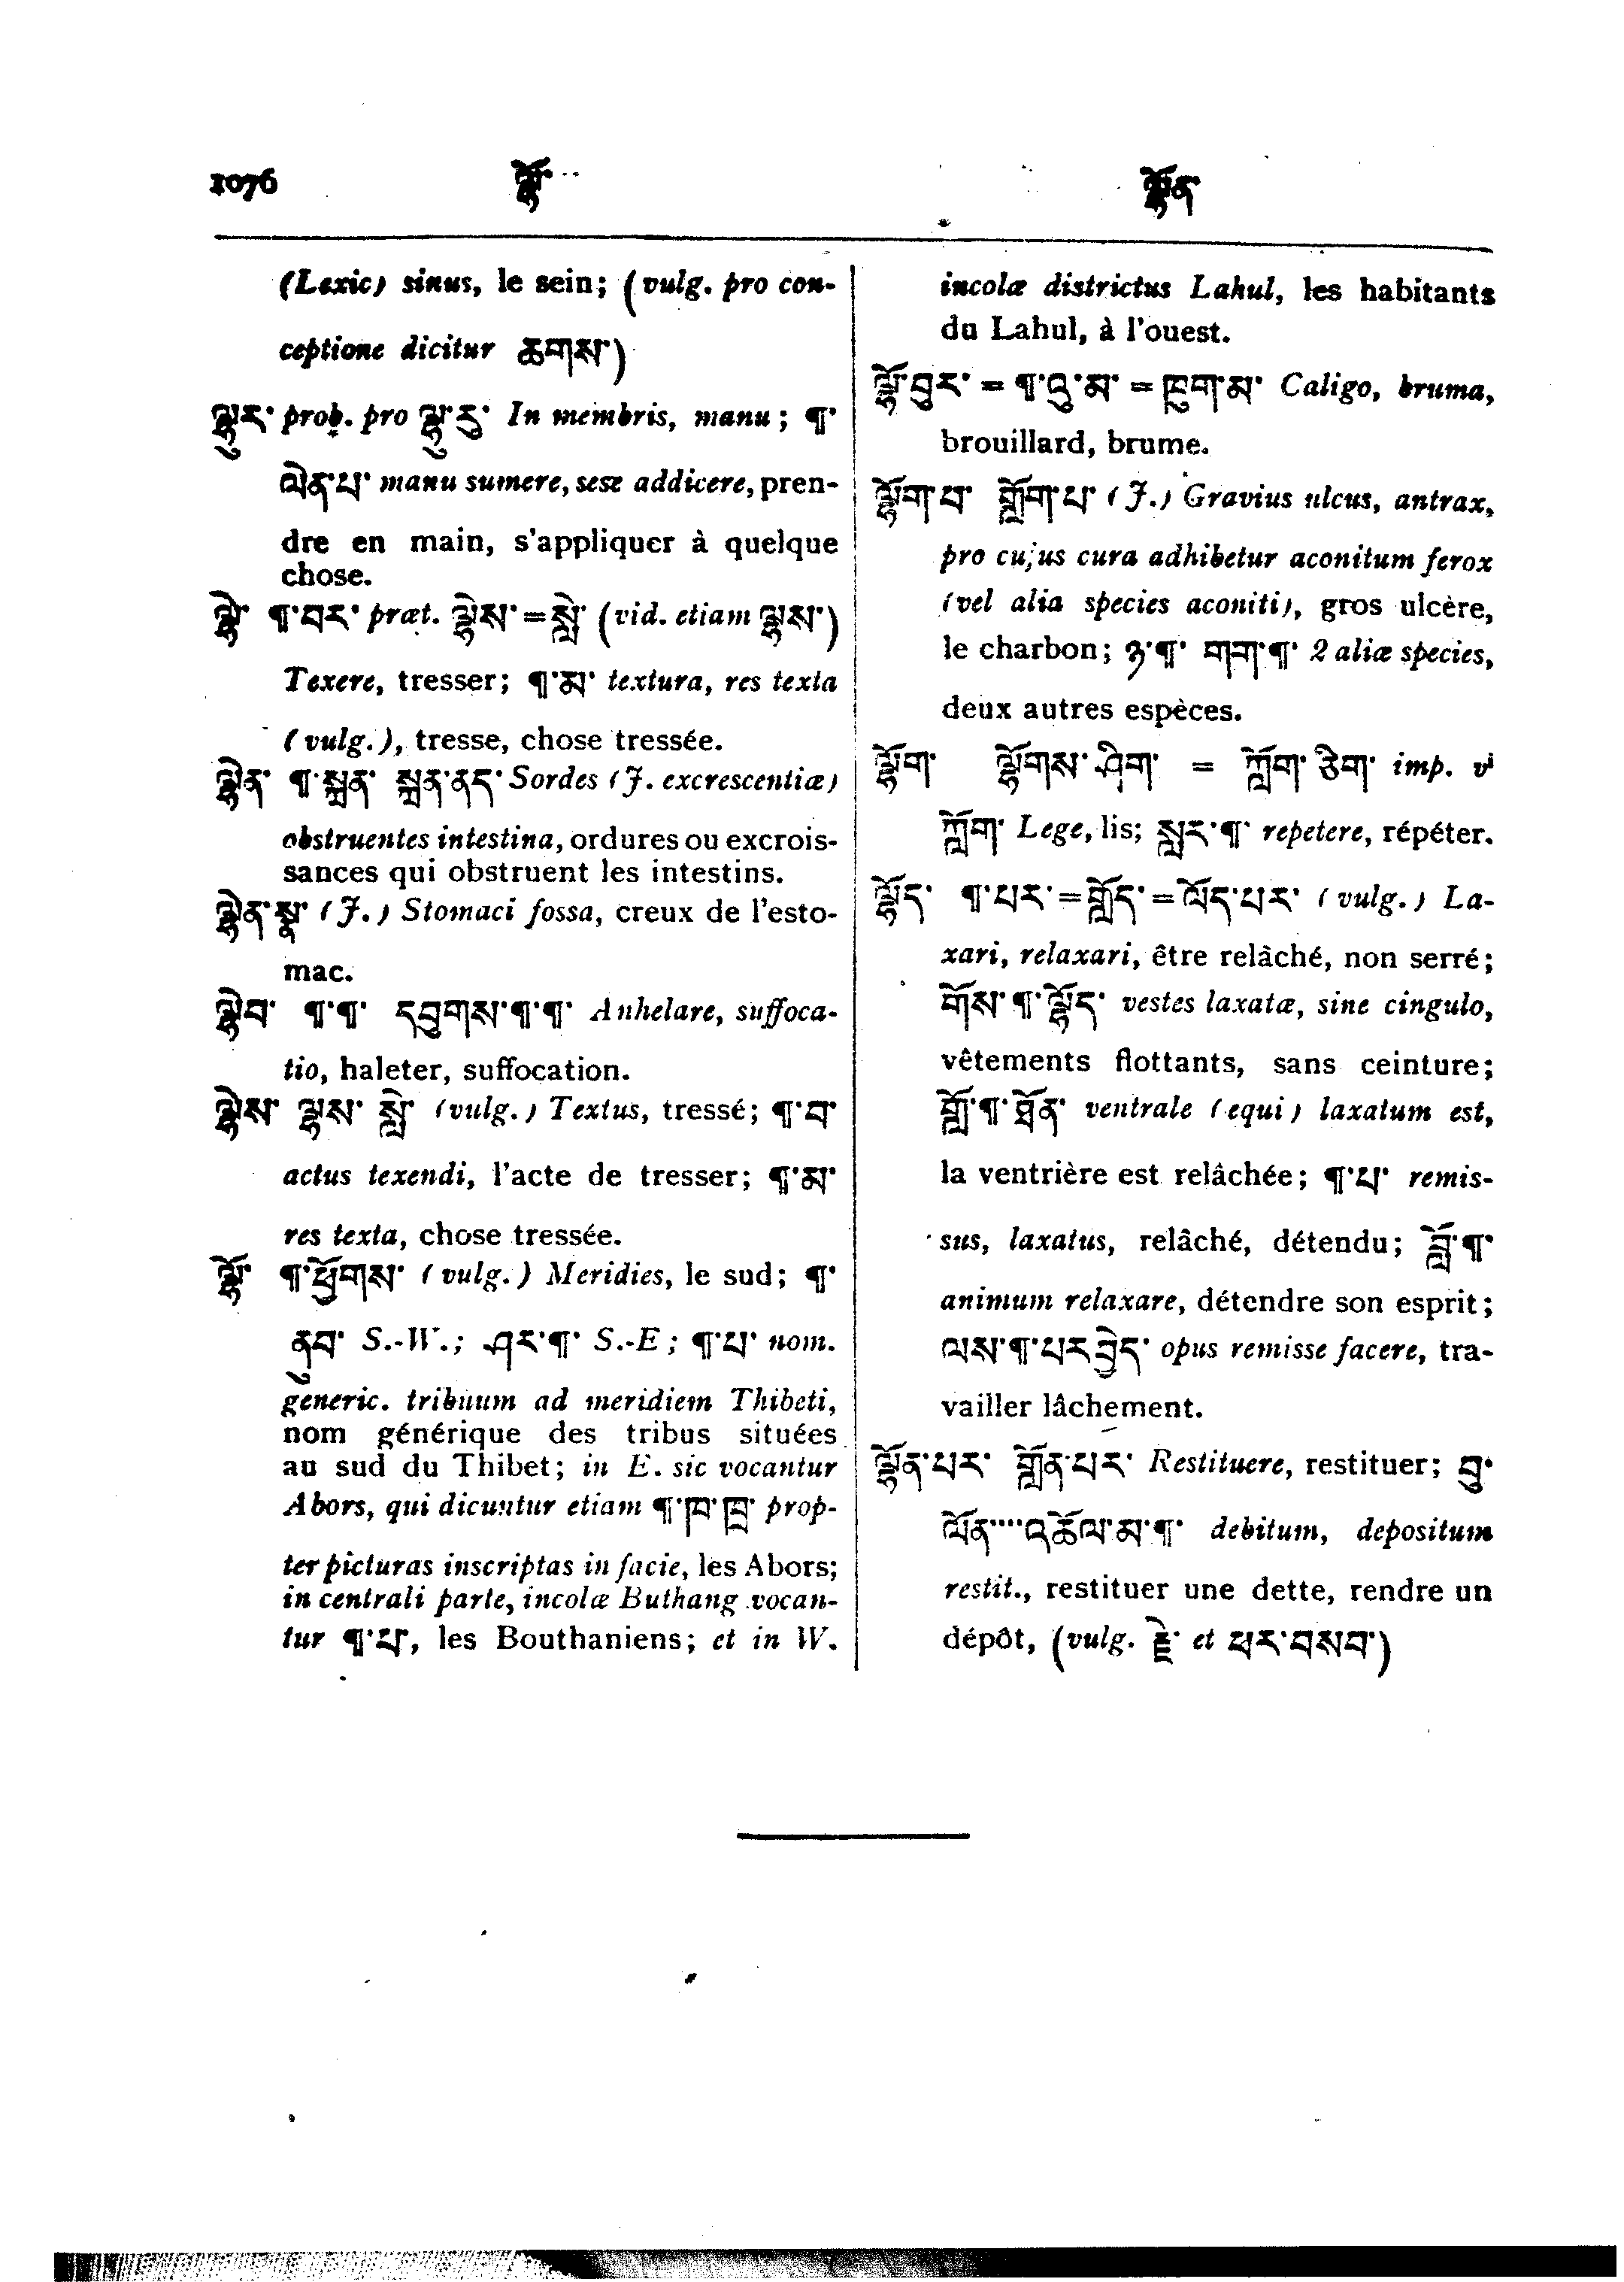 1076 ལྷོ་ ལྷོན་
(Lexic) sinus, le sein; (vulg. pro con-
ceptione dicitur ཆགས་)
ལྷུར་ prob. pro ལྷུ་རུ་ In membris, manu; ¶་
ལེན་པ་ manu sumere, sese addicere, pren-
dre en main, s'appliquer à quelque
chose.
ལྷེ་ ¶་བར་ præt. ལྷེས་=སླེ་ (vid. etiam ལྷས་)
Texere, tresser; ¶་མ་ textura, res texta
(vulg.), tresse, chose tressée.
ལྷེན་ ¶་སྐྲན་ སྐྲན་ནད་ Sordes (J. excrescentiæ)
obstruentes intestina, ordures ou excrois-
sances qui obstruent les intestins.
ལྷེན་སྣ་ (J.) Stomaci fossa, creux de l'esto-
mac.
ལྷེབ་ ¶་¶་ དབུགས་¶་¶་ Anhelare, suffoca-
tio, haleter, suffocation.
ལྷེས་ ལྷས་ སླེ་ (vulg.) Textus, tressé; ¶་བ་
actus texendi, l'acte de tresser; ¶་མ་
res texta, chose tressée.
ལྷོ་ ¶་ཕྱོགས་ (vulg.) Meridies, le sud; ¶་
ནུབ་ S.-W.; ཤར་¶་ S.-E; ¶་པ་ nom.
generic. tribuum ad meridiem Thibeti,
nom générique des tribus situées
au sud du Thibet; in E. sic vocantur
Abors, qui dicuntur etiam ¶་ཁ་ཁྲ་ prop-
ter picturas inscriptas in facie, les Abors;
in centrali parte, incolæ Buthang vocan-
tur ¶་པ་, les Bouthaniens; et in W.
incolæ districtus Lahul, les habitants
du Lahul, à l'ouest.
ལྷོ་བུར་ = ¶་འུ་མ་ = ཁུག་མ་ Caligo, bruma,
brouillard, brume.
ལྷོག་པ་ གློག་པ་ (J.) Gravius ulcus, antrax,
pro cujus cura adhibetur aconitum ferox
(vel alia species aconiti), gros ulcère,
le charbon; ཉ་¶་ གག་¶་ 2 aliæ species,
deux autres espèces.
ལྷོག་ ལྷོགས་ཤིག་ = ཀློག་ ཅིག་ imp. vi
ཀློག་ Lege, lis; སླར་¶་ repetere, répéter.
ལྷོད་ ¶་པར་=གློད་=ལོད་པར་ (vulg.) La-
xari, relaxari, être relâché, non serré;
གོས་¶་ལྷོད་ vestes laxatæ, sine cingulo,
vêtements flottants, sans ceinture;
གློ་¶་ཐོན་ ventrale (equi) laxatum est,
la ventrière est relâchée; ¶་པ་ remis-
sus, laxatus, relâché, détendu; བློ་¶་
animum relaxare, détendre son esprit;
ལས་¶་པར་བྱེད་ opus remisse facere, tra-
vailler lâchement.
ལྷོན་པར་ གློན་པར་ Restituere, restituer; བུ་
ལོན་་་་འཆོལ་མ་¶་ debitum, depositum
restit., restituer une dette, rendre un
dépôt, (vulg. རྗེ་ et ཕར་བསབ་)